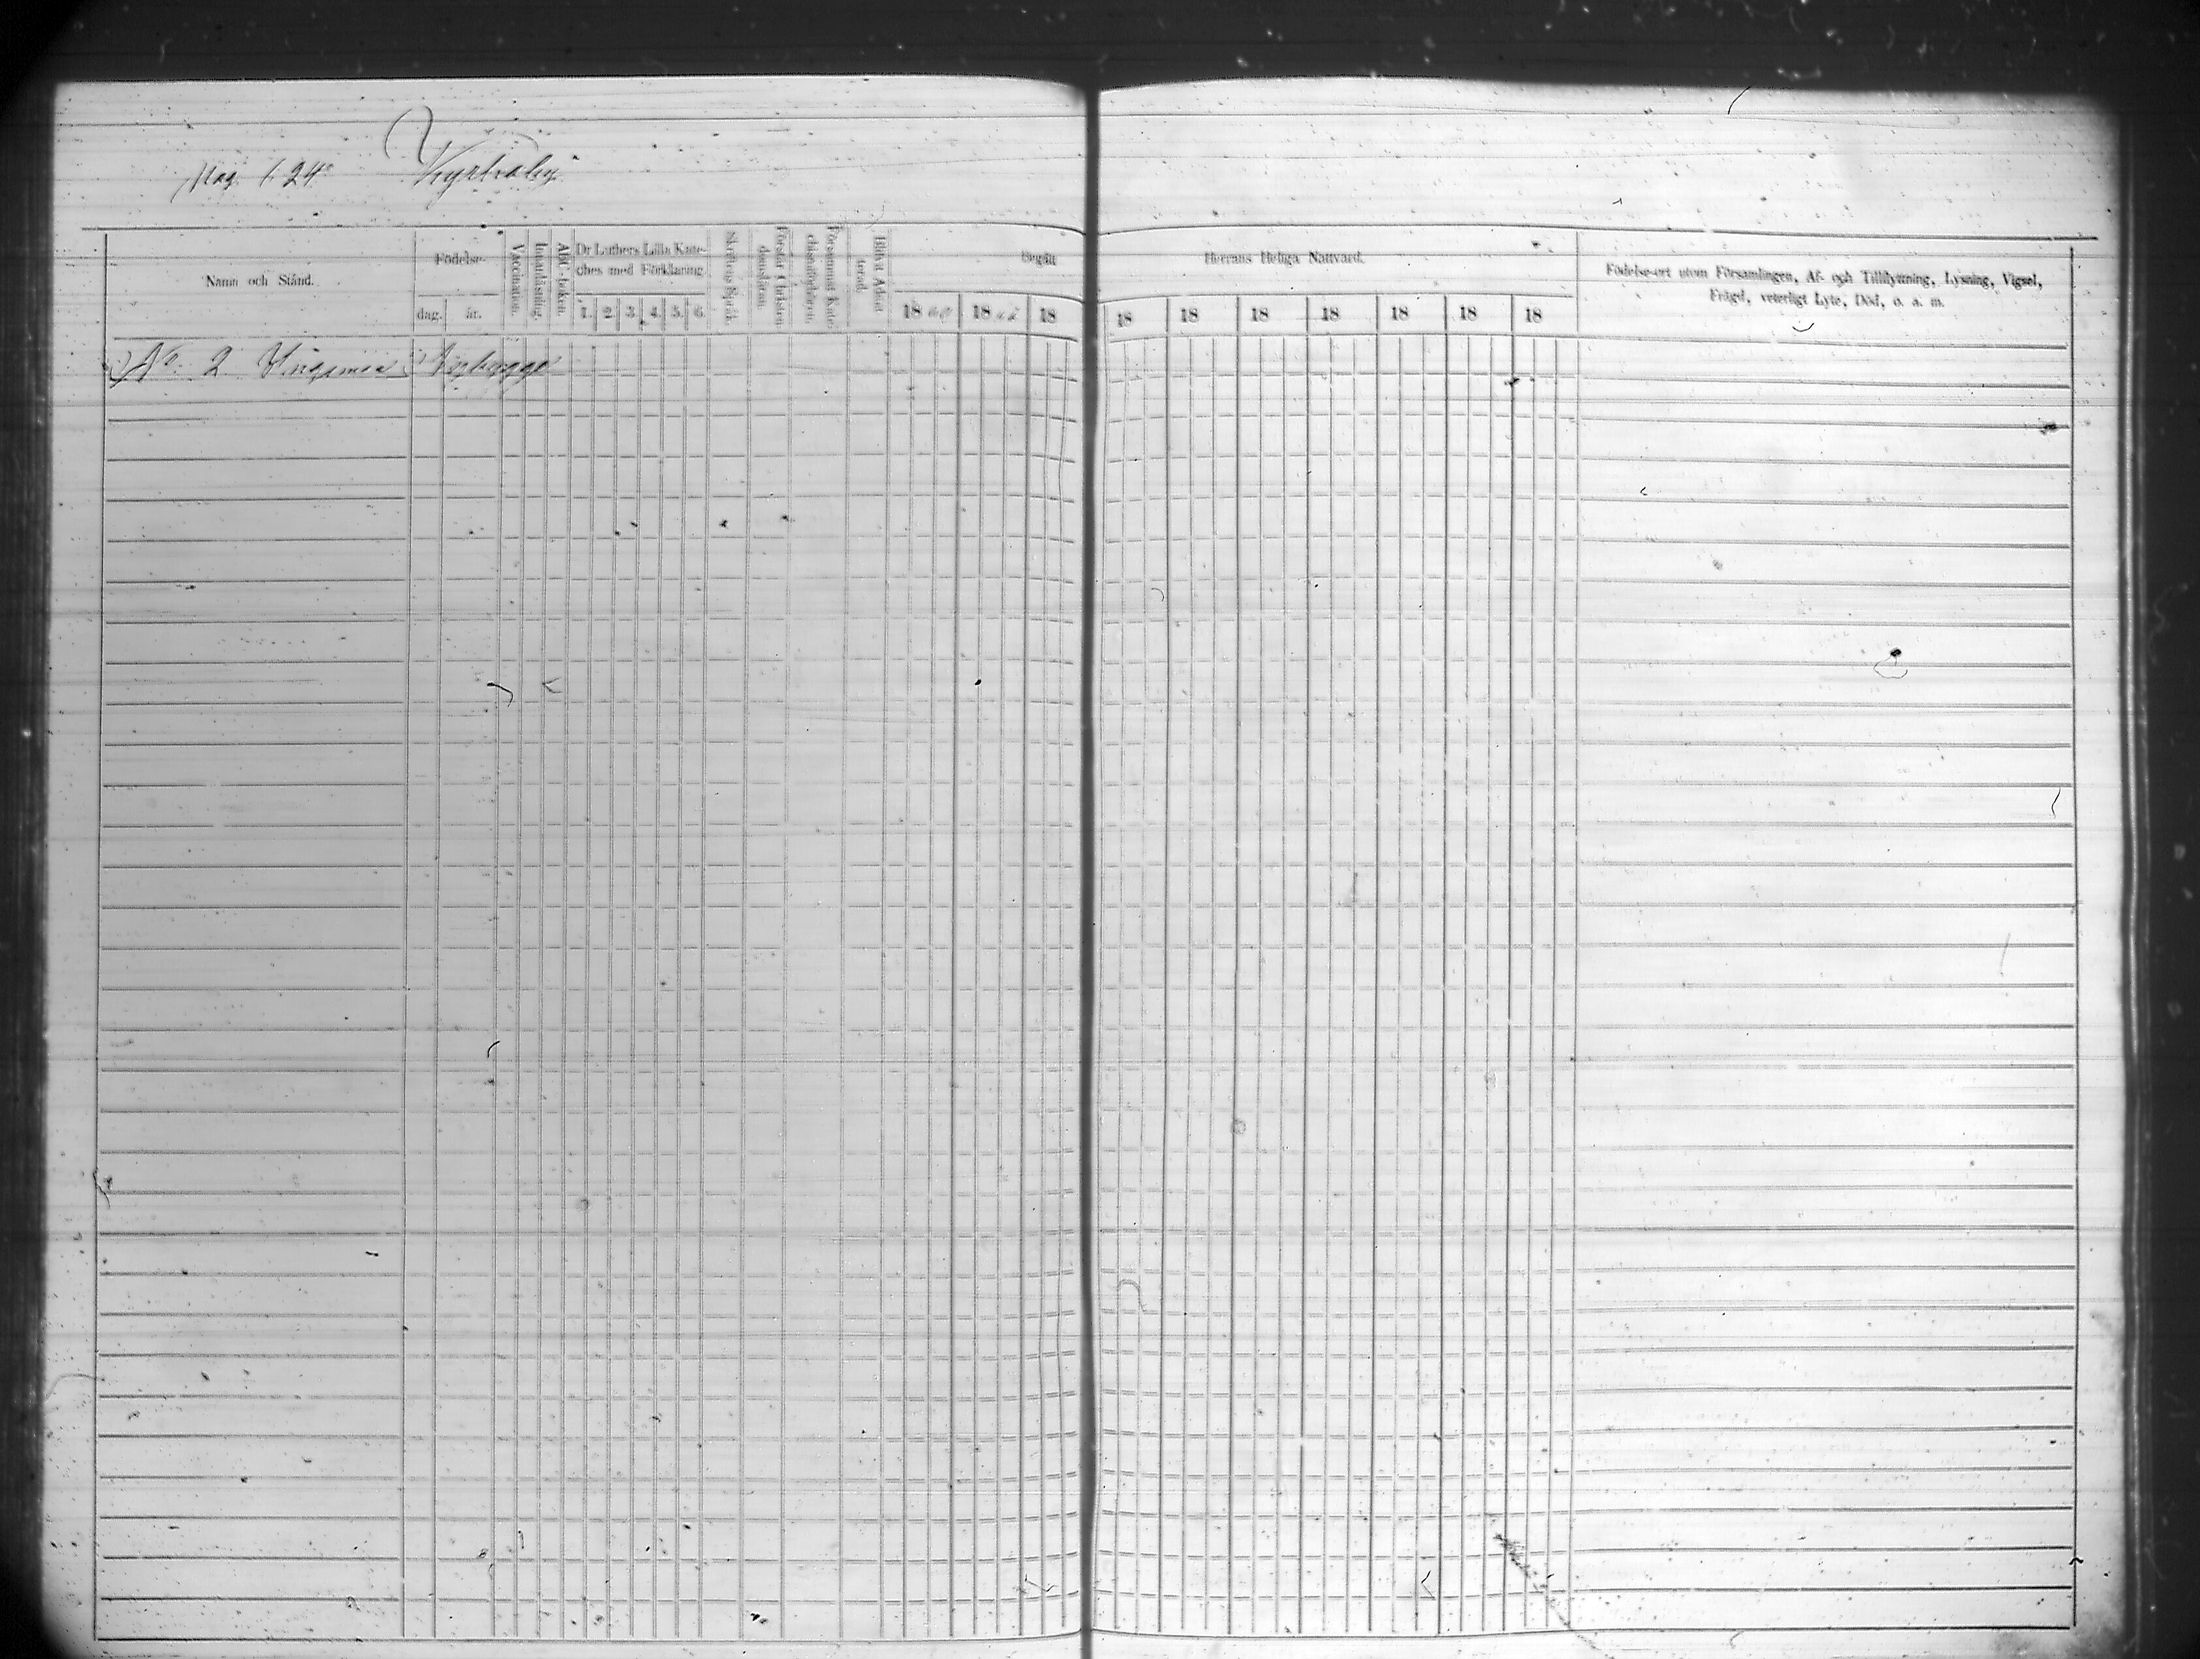 Pag. 124
Kyrkoby
Namn och Stånd.
Födelse-
dag.
år.
Vaccination.
Innanläsning.
ABC-boken.
Dr Luthers Lilla Kate-
ches med Förklaring.
1. 2. 3. 4. 5. 6.
Skriftens Språk.
Förstår Christen-
domsläran.
Försummat Kate-
chismiförhören.
Blifvit Admit-
terad.
Begått Herrans Heliga Nattvard.
18 18 18 18 18 18 18 18 18 18
Födelse-ort utom Församlingen, Af- och Tillflyttning, Lysning, Vigsel,
Frägd, veterligt Lyte, Död, o. a. m.
No. 2